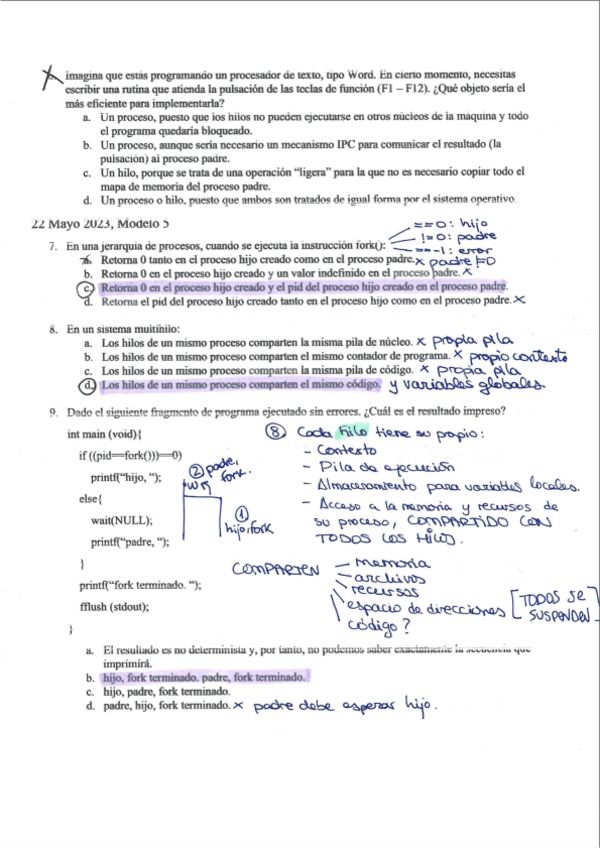 imagina que estás programando un procesador de texto, tipo Word. En cierto momento, necesitas
escribir una rutina que atienda la pulsación de las teclas de función (F1 – F12). ¿Qué objeto sería el
más eficiente para implementarla?
a. Un proceso, puesto que los hilos no pueden ejecutarse en otros núcleos de la maquina y todo
el programa quedaría bloqueado.
b. Un proceso, aunque sería necesario un mecanismo IPC para comunicar el resultado (la
pulsación) al proceso padre.
c. Un hilo, porque se trata de una operación “ligera” para la que no es necesario copiar todo el
mapa de memoria del proceso padre.
d. Un proceso o hilo, puesto que ambos son tratados de igual forma por el sistema operativo.
22 Mayo 2023, Modelo 5
==0: hijo
!=0: padre
==-1: error
7. En una jerarquia de procesos, cuando se ejecuta la instrucción fork():
a. Retorna 0 tanto en el proceso hijo creado como en el proceso padre. x padre !=0
b. Retorna 0 en el proceso hijo creado y un valor indefinido en el proceso padre. x
c. Retorna 0 en el proceso hijo creado y el pid del proceso hijo creado en el proceso padre.
d. Retorna el pid del proceso hijo creado tanto en el proceso hijo como en el proceso padre. x
8. En un sistema multihilo:
a. Los hilos de un mismo proceso comparten la misma pila de núcleo. x propia pila
b. Los hilos de un mismo proceso comparten el mismo contador de programa. x propio contexto
c. Los hilos de un mismo proceso comparten la misma pila de código. x propia pila
d. Los hilos de un mismo proceso comparten el mismo código. y variables globales.
9. Dado el siguiente fragmento de programa ejecutado sin errores. ¿Cuál es el resultado impreso?
int main (void){
if ((pid==fork()))==0)
printf("hijo, ");
else{
wait(NULL);
printf("padre, ");
}
printf("fork terminado. ");
fflush (stdout);
}
② padre,
fork.
①
hijo, fork
⑧ Cada hilo tiene su propio:
- Contexto
- Pila de ejecución
- Almacenamiento para variables locales.
- Acceso a la memoria y recursos de
su proceso, COMPARTIDO CON
TODOS LOS HILOS.
COMPARTEN - memoria
- archivos
- recursos
espacio de direcciones [TODOS SE
SUSPENDEN
código?
a. El resultado es no determinista y, por tanto, no podemos saber exactamente la secuencia que
imprimirá.
b. hijo, fork terminado. padre, fork terminado.
c. hijo, padre, fork terminado.
d. padre, hijo, fork terminado. x padre debe esperar hijo.